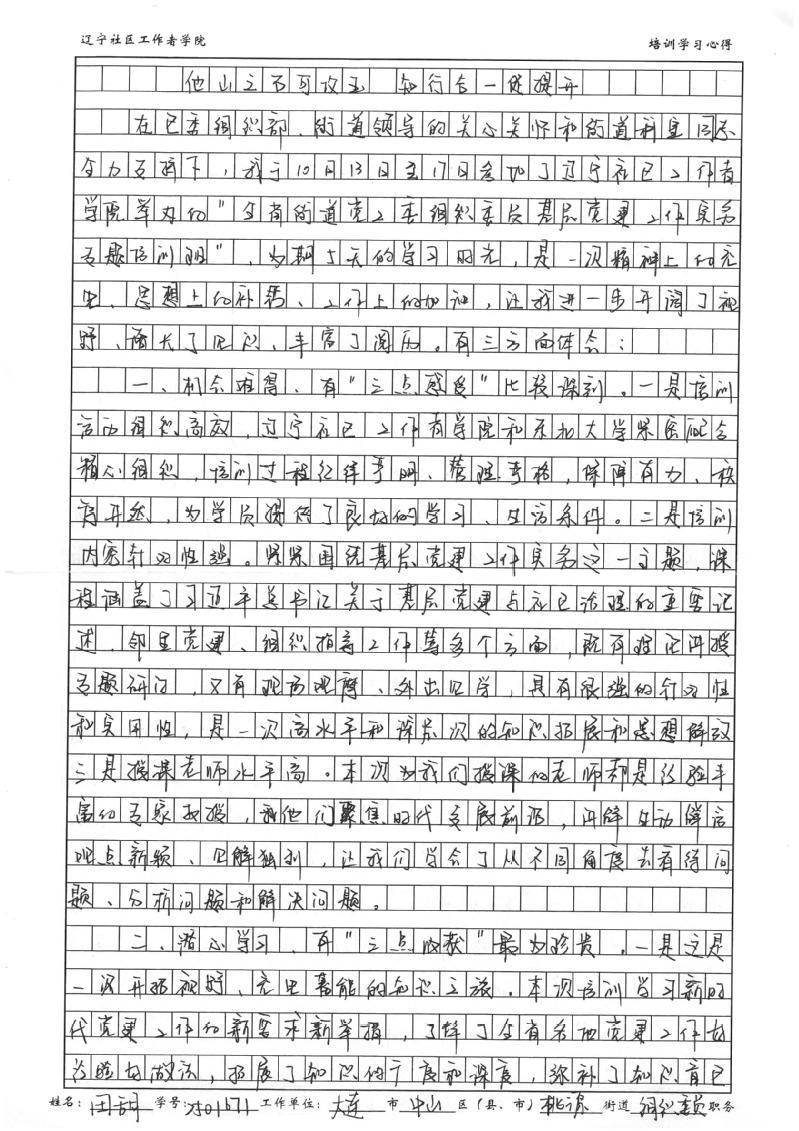 辽宁社区工作者学院 培训学习心得
他山之石可攻玉 知行合一促提升
在区委组织部、街道领导的关心关怀和街道科室同志
全力支持下，我于10月13日至17日参加了辽宁社区工作者
学院举办的"全省街道党工委组织委员基层党建工作实务
专题培训班"，为期5天的学习时光，是一次精神上的充
电、思想上的补钙、工作上的加油，让我进一步开阔了视
野、增长了见识、丰富了阅历。有三方面体会：
一、机会难得、有"三点感受"比较深刻。一是培训
活动组织高效，辽宁社区工作者学院和东北大学紧密配合
精心组织，培训过程纪律严明、管理严格，保障有力、秩
序井然，为学员提供了良好的学习、生活条件。二是培训
内容针对性强。紧紧围绕基层党建工作实务这一主题，课
程涵盖了习近平总书记关于基层党建与社区治理的重要论
述、邻里党建、组织指导工作等多个方面，既有理论讲授
专题研讨，又有现场观摩、外出见学，具有很强的针对性
和实用性，是一次高水平和深层次的知识拓展和思想解放
三是授课老师水平高。本次为我们授课的老师都是经验丰
富的专家教授，和他们聚焦时代发展前沿，讲解生动 语言
观点新颖、见解独到，让我们学会了从不同角度去看待问
题、分析问题和解决问题。
二、潜心学习、有"三点收获"最为珍贵。一是这是
一次开拓视野、充电蓄能的知识之旅。本次培训学习新时
代党建工作的新要求新举措，了解了全省各地党建工作好
经验好做法，拓展了知识的广度和深度，弥补了知识盲区
姓名：田甜 学号：2501671 工作单位：大连 市 中山 区（县、市）桃源 街道 组织委员 职务